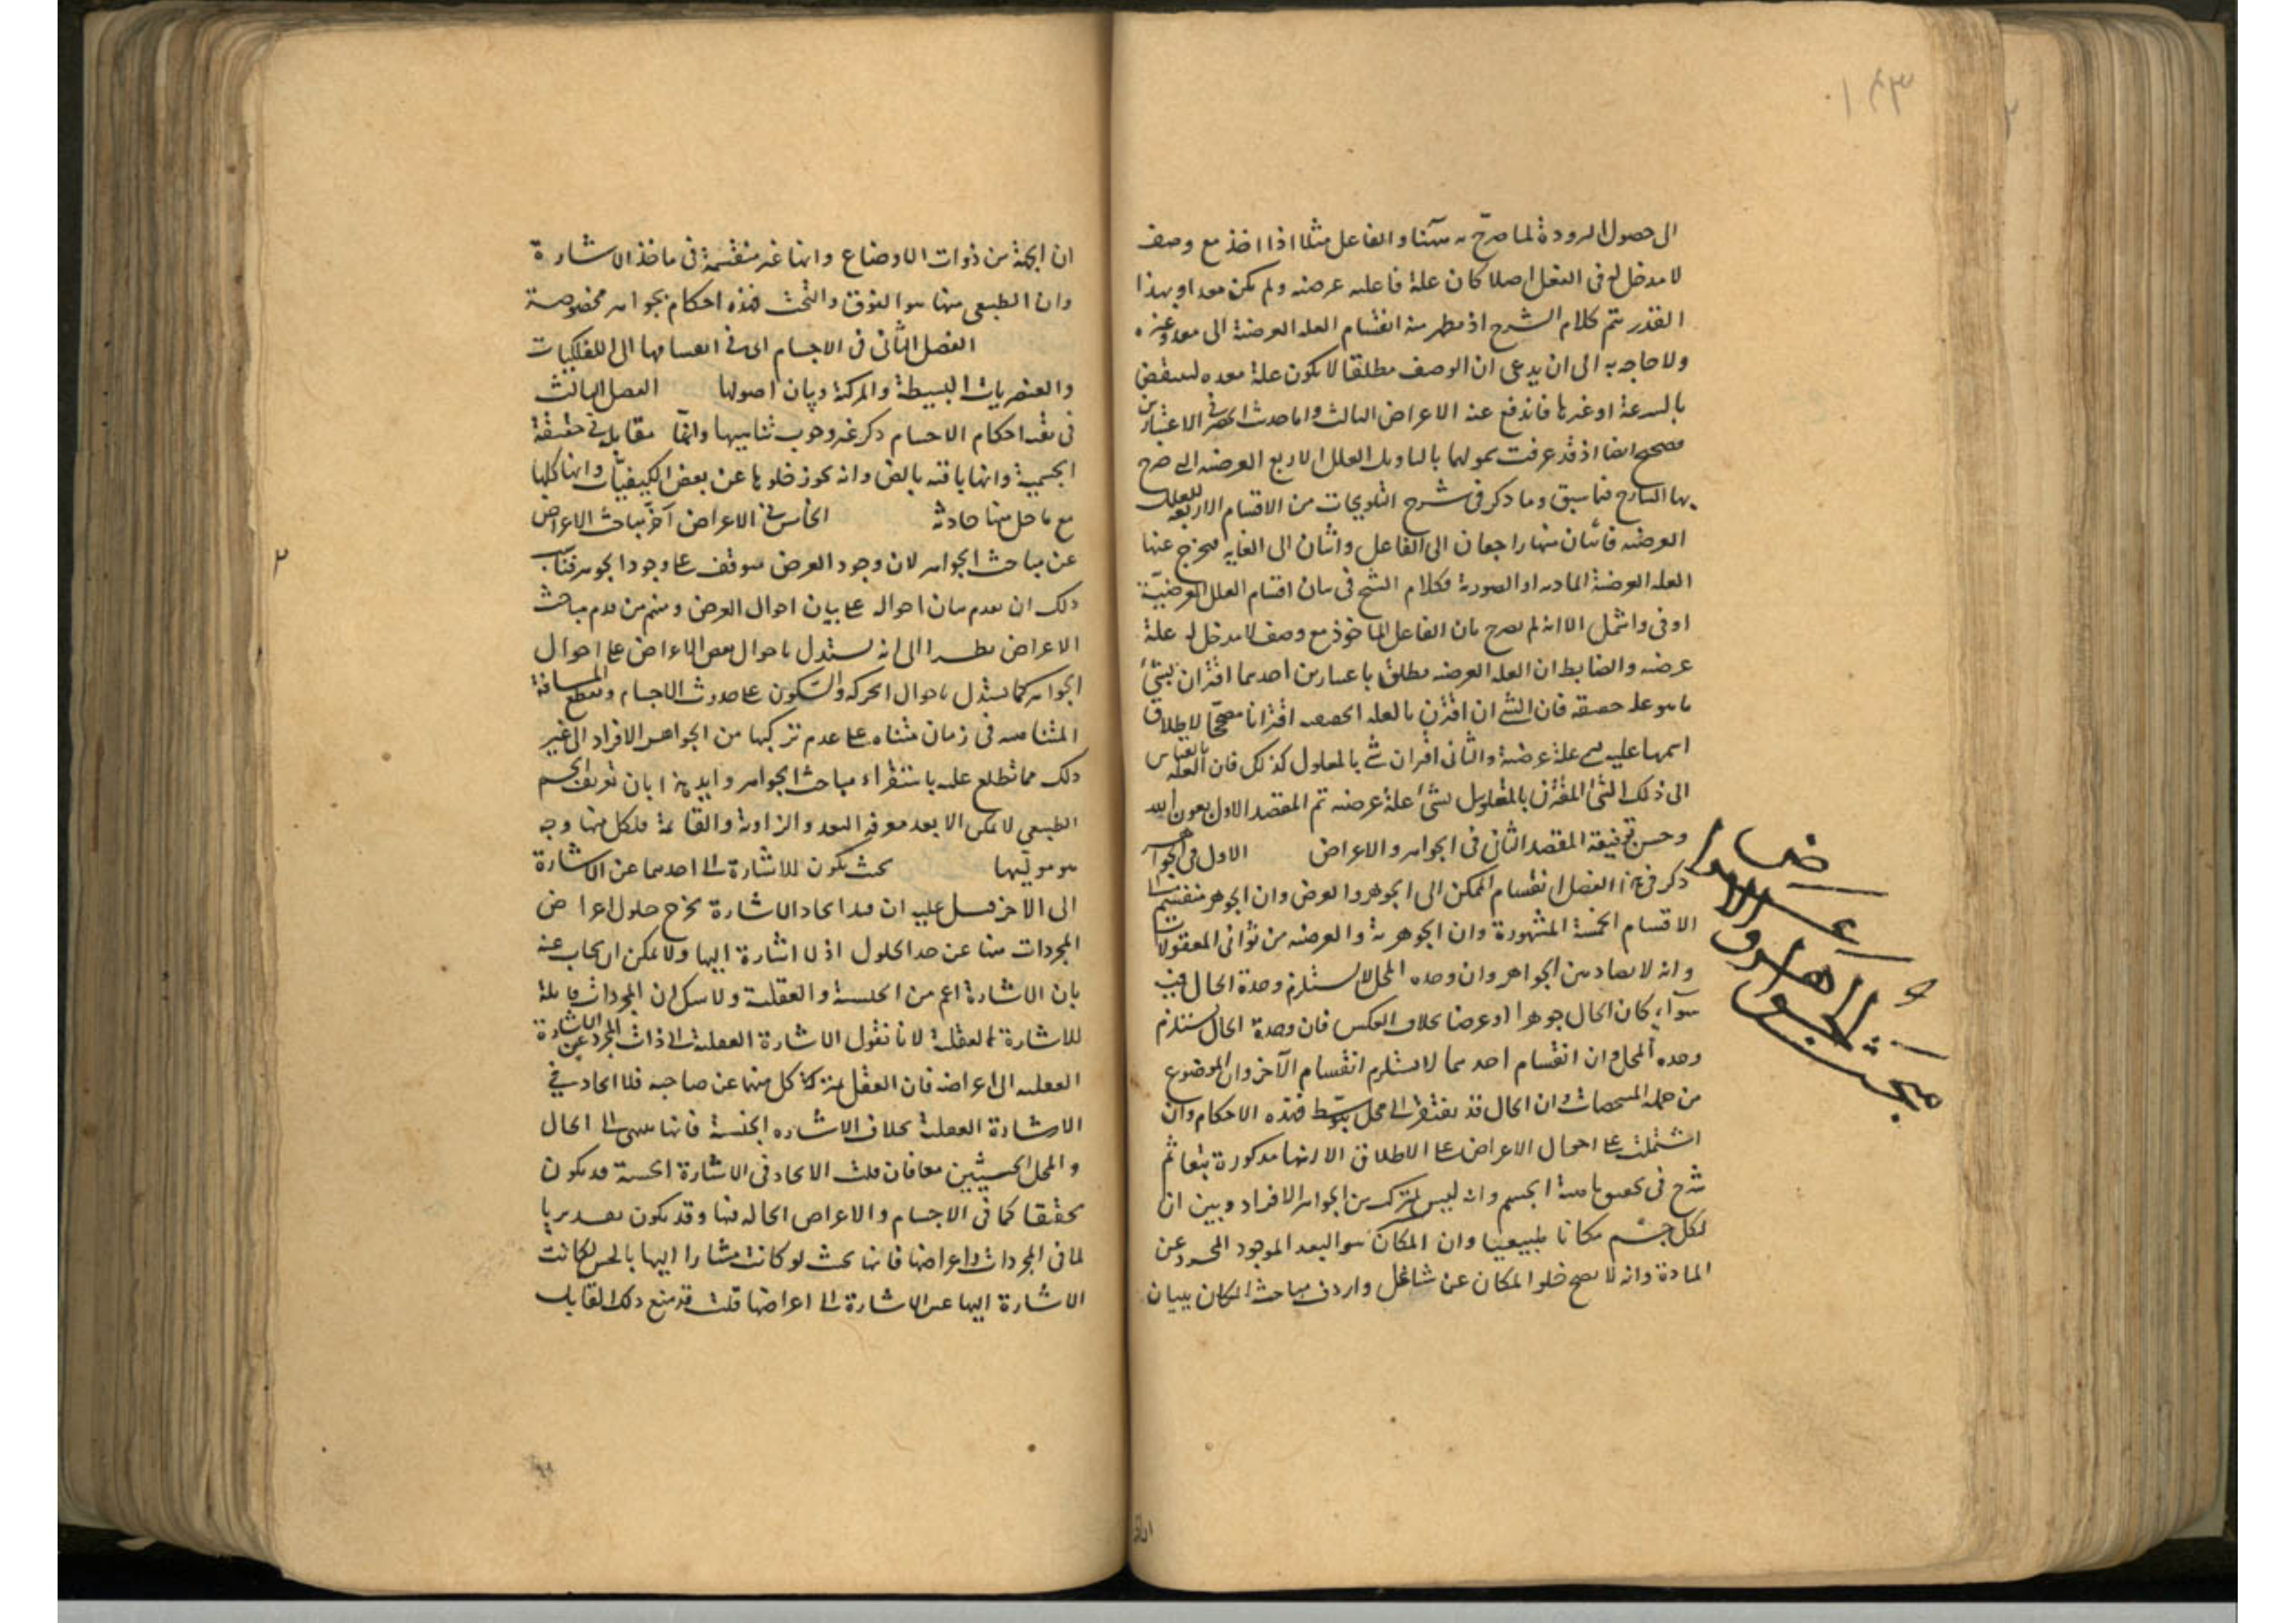 ١٤٣
الى حصول البرودة لما صرح به
والفاعل مثلا اذا اخذ مع وصف
لا مدخل له فى الفعل اصلا كان علة فاعليه عرضيه ولم يكن معدا وبهذا
القدر يتم كلام الشرح اذ يظهر منه انقسام العله العرضية الى معد وغيره
ولا حاجه به الى ان يدعى ان الوصف مطلقا لا يكون علة معده لينتقض
بالسرعة او غيرها فاندفع عنه الاعراض الثالث واما حديث الحصر فى الاعتبارين
فصحيح ايضا اذ قد عرفت شمولهما بالتاويل العلل الاربع العرضيه التى صرح
بها الشارح فيما سبق وما ذكر فى شرح التلويحات من الاقسام الاربعة للعلل
العرضيه فاثنان منهما راجعان الى الفاعل واثنان الى الغايه فيخرج عنها
العله العرضية الماديه او الصورية فكلام الشيخ فى بيان اقسام العلل العرضيّة
اوفى واشمل الا انه لم يصرح بان الفاعل الماخوذ مع وصف لا مدخل له علة
عرضيه والضابط ان العله العرضيه يطلق باعتبارين احدهما اقتران شئ
بما هو علة حقيقه فان الشئ ان اقترن بالعله الحقيقيه اقترانا مصححا لاطلاق
اسمها عليه سمى علة عرضية والثانى اقتران شئ بالمعلول كذلك فان العله بالقياس
الى ذلك الشئ المقترن بالمعلول يسمى علة عرضيه تم المقصد الاول بعون الله
وحسن توفيقه المقصد الثانى فى الجواهر والاعراض الاول فى الجواهر
ذكر فى هذا الفصل انقسام الممكن الى الجوهر والعرض وان الجوهر منقسم الى
الاقسام الخمسة المشهورة وان الجوهرية والعرضيه من ثوانى المعقولات
وانه لا تضاد بين الجواهر وان وحده المحل لا يستلزم وحدة الحال فيه
سواء كان الحال جوهرا او عرضا بخلاف العكس فان وحدة الحال يستلزم
وحده المحل وان انقسام احدهما لا يستلزم انقسام الآخر وان الموضوع
من جملة المشخصات وان الحال قد يفتقر الى محل يتوسط فهذه الاحكام وان
اشتملت على احوال الاعراض على الاطلاق الا انها مذكورة تبعا ثم
شرح فى تحقيق ماهية الجسم وانه ليس بمتركب من الجواهر الافراد وبين ان
لكل جسم مكانا طبيعيا وان المكان هو البعد الموجود المجرد عن
المادة وانه لا يصح خلو المكان عن شاغل واردف مباحث المكان ببيان
ان الجهة من ذوات الاوضاع وانها غير منقسمة فى ماخذ الاشارة
وان الطبيعى منها هو الفوق والتحت فهذه احكام بجواهر مخصوصة
الفصل الثانى فى الاجسام اى فى انقسامها الى الفلكيات
والعنصريات البسيطة والمركبة وبيان اصولها الفصل الثالث
فى بقية احكام الاجسام ذكر فيه وجوب تناهيها وانها متماثلة فى حقيقة
الجسمية وانها باقيه بالض وانه يجوز خلوها عن بعض الكيفيات وانها كلها
مع ما حل منها حادثة الخامس فى الاعراض آخر مباحث الاعراض
عن مباحث الجواهر لان وجود العرض يتوقف على وجود الجوهر فناسب
ذلك ان تقدم بيان احواله على بيان احوال العرض ومنهم من قدم مباحث
الاعراض نظرا الى انه يستدل باحوال بعض الاعراض على احوال
الجواهر كما يستدل باحوال الحركة والسكون على حدوث الاجسام وبقطع المسافة
المتناهيه فى زمان متناه على عدم تركبها من الجواهر الافراد الى غير
ذلك مما تطلع عليه باستقراء مباحث الجواهر وايد هذا بان تعريف الجسم
الطبيعى لا يمكن الا بعد معرفة البعد والزاوية والقائمة فلكل منهما وجهة
هو موليها بحيث يكون الاشارة الى احدهما عين الاشارة
الى الآخر قيل عليه ان قيد اتحاد الاشارة يخرج حلول اعراض
المجردات منها عن حد الحلول اذ لا اشارة اليها ولا يمكن ان يجاب عنه
بان الاشارة اعم من الحسية والعقلية ولا شك ان المجردات قابلة
للاشارة العقلية لانا نقول الاشارة العقلية الى ذات المجرد غير الاشارة
العقليه الى اعراضه فان العقل يميز كلا منهما عن صاحبه فلا اتحاد فى
الاشارة العقلية بخلاف الاشاره الحسية فانها تنتهى الى الحال
والمحل الحسيين معا فان قلت الاتحاد فى الاشارة الحسية قد يكون
تحقيقا كما فى الاجسام والاعراض الحالة فيها وقد يكون تقديريا
كما فى المجردات واعراضها فانها بحيث لو كانت مشارا اليها بالحس لكانت
الاشارة اليها عين الاشارة الى اعراضها قلت قد منع ذلك القائل